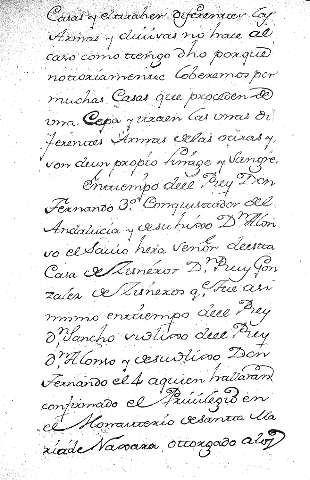 Casas y el traher diferentes las
Armas y divisas no hace al
caso como tengo dho porque
notoriamente loberemos por
muchas Casas que proceden de
una Cepa y traen las unas di
ferentes Armas de las otras y
son de un propio linage y Sangre.
En tiempo de el Rey Don
Fernando 3.º Conquistador del
Andalucia y de su hijo Dn Alon
so el Savio hera Señor de esta
Casa de Zisneros Dn Ruy Gon
zalez de Zisneros qe fue asi
mismo en tiempo de el Rey
dn Sancho su hijo de el Rey
dn Alonso y de su hijo Don
Fernando el 4 a quien hallaran
confirmado el Privilegio en
el Monasterio de Santa Ma
ria de Naxara, otorgado a los